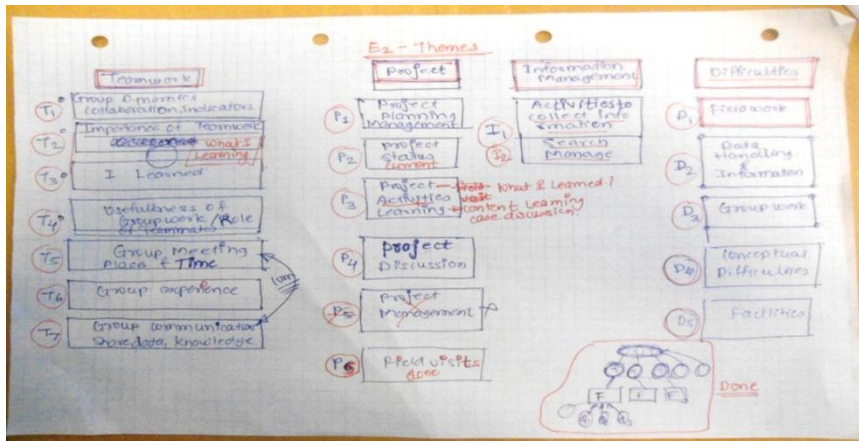 E2 - Themes
Teamwork
T1 Group Dynamics
collaboration Indicators
T2 Importance of Teamwork
What I
Learning
T3 I Learned
T4 Usefullness of
Group work / Role
of Teammates
T5 Group Meeting
Place & Time
T6 Group experience
T7 Group communication
Share data, knowledge
Project
P1 Project
Planning
Management
P2 project
Status
current
P3 Project
Activities
Learning
What I Learned?
visit
content Learning
case discussion?
P4 project
Discussion
P5 Project
Management
P6 Field visits
done
Information
Management
I1 Activities to
collect Info
rmation
I2 Search
Manage
Difficulties
D1 Fieldwork
D2 Data
Handling
&
Information
D3 Group work
D4 Conceptual
Difficulties
D5 Facilities
F F F
Done